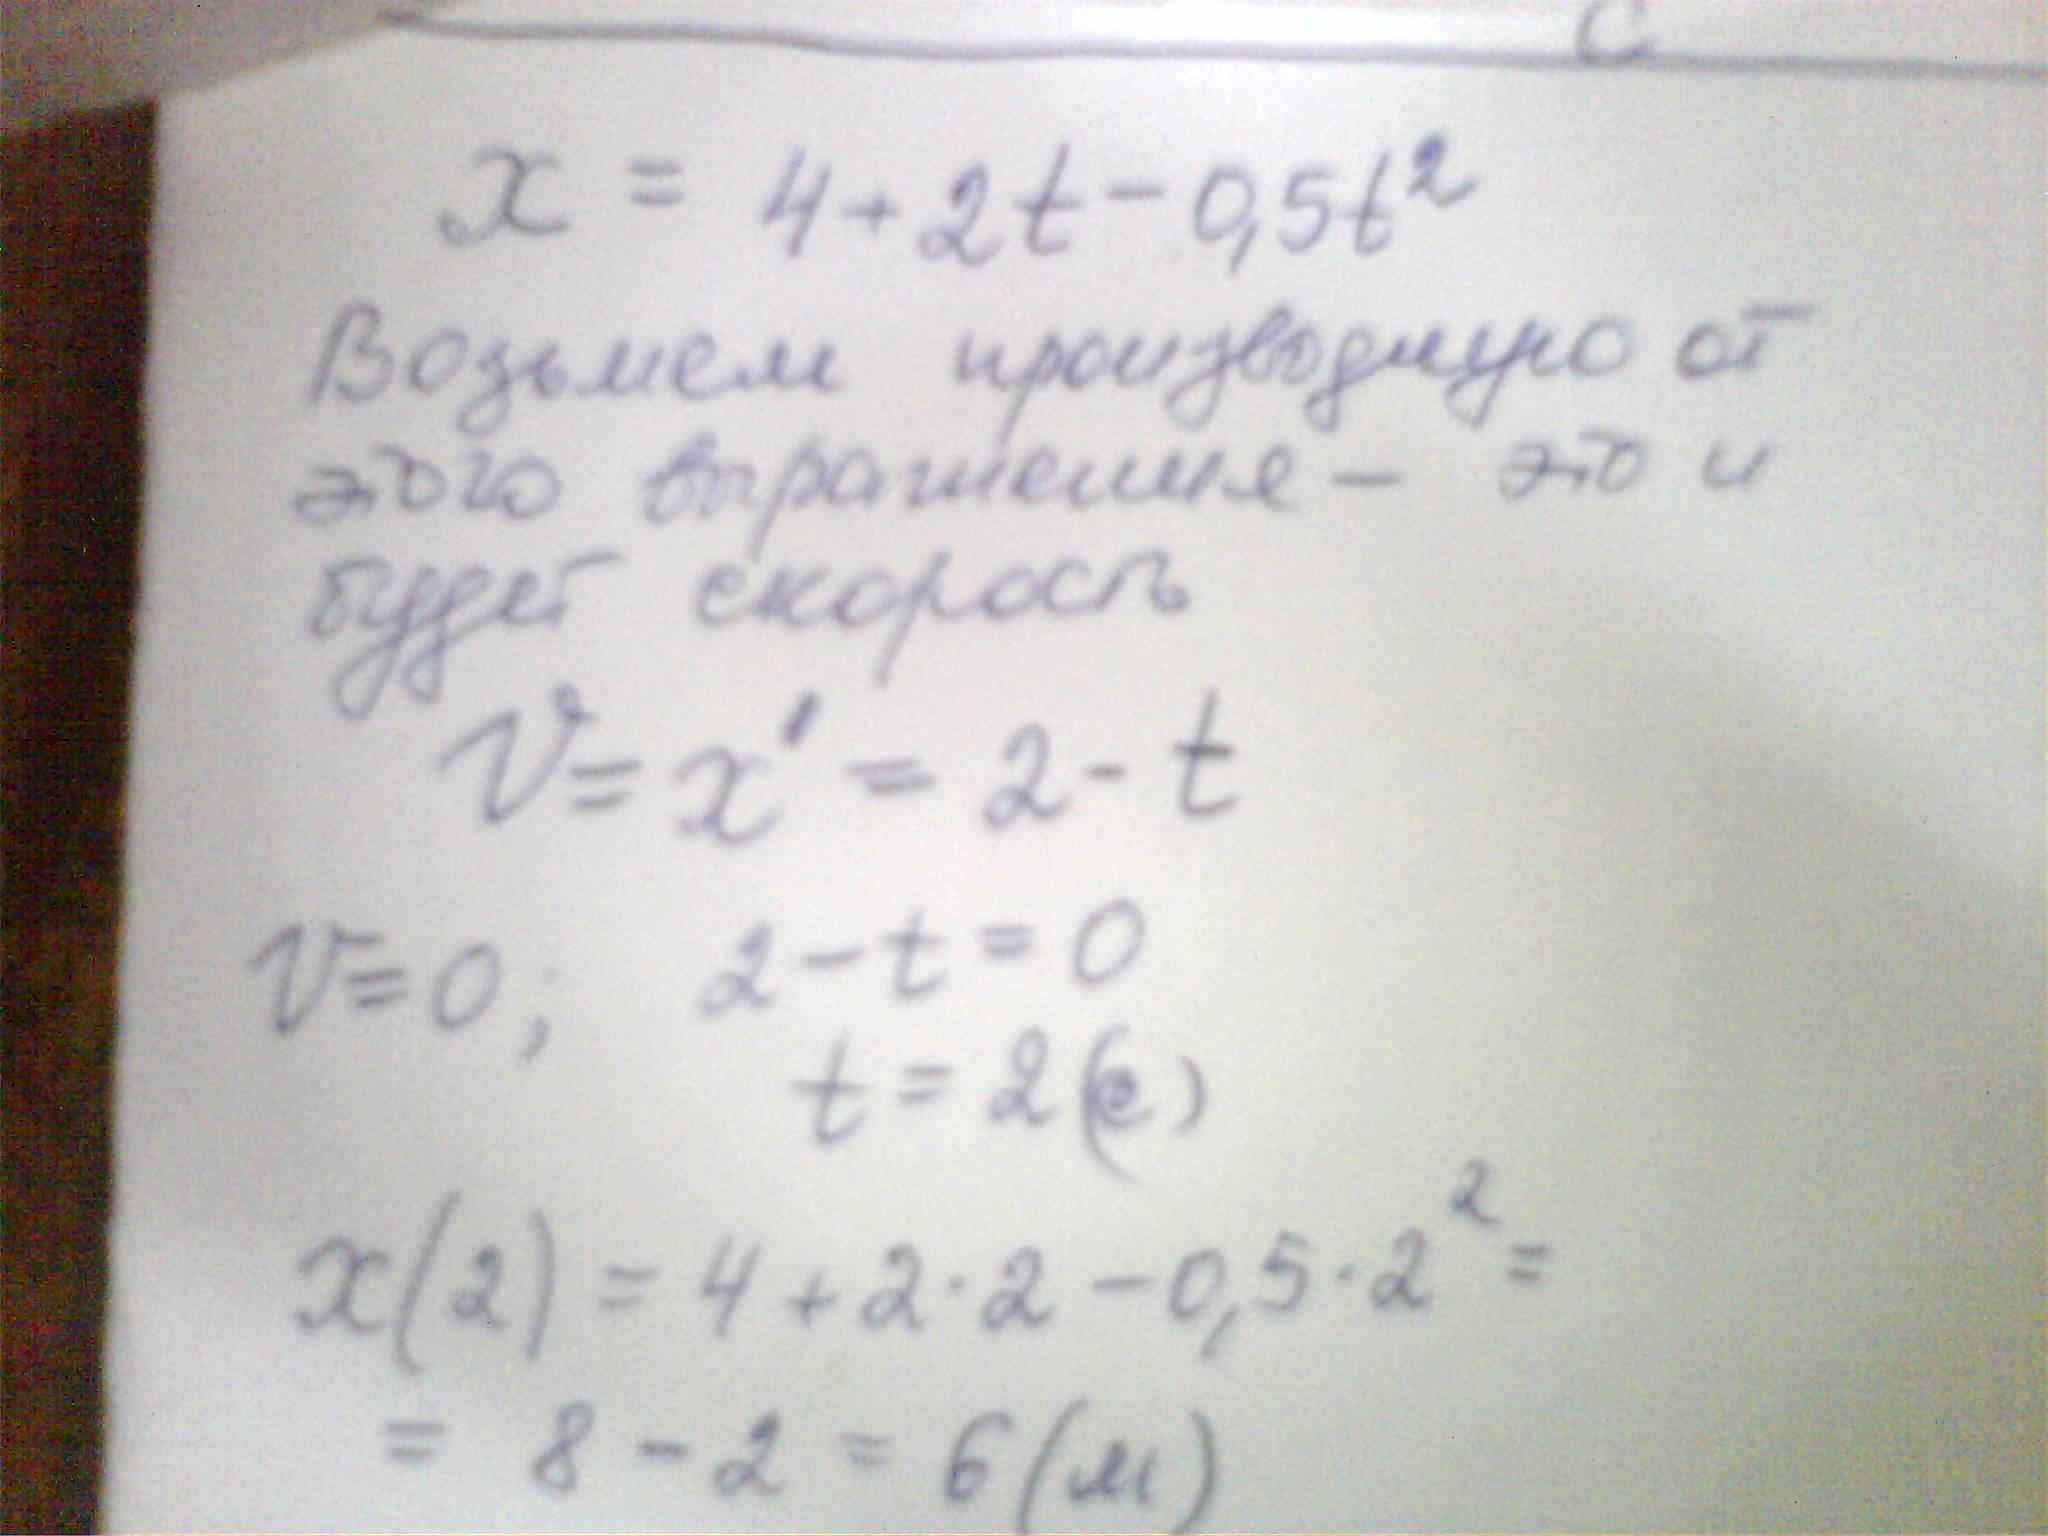 с
x = 4+2t-0,5t²
Возьмем производную от
этого выражения — это и
будет скорость
V = x' = 2 - t
V=0; 2-t=0
t = 2(с)
x(2) = 4+2·2-0,5·2² =
= 8-2 = 6(м)